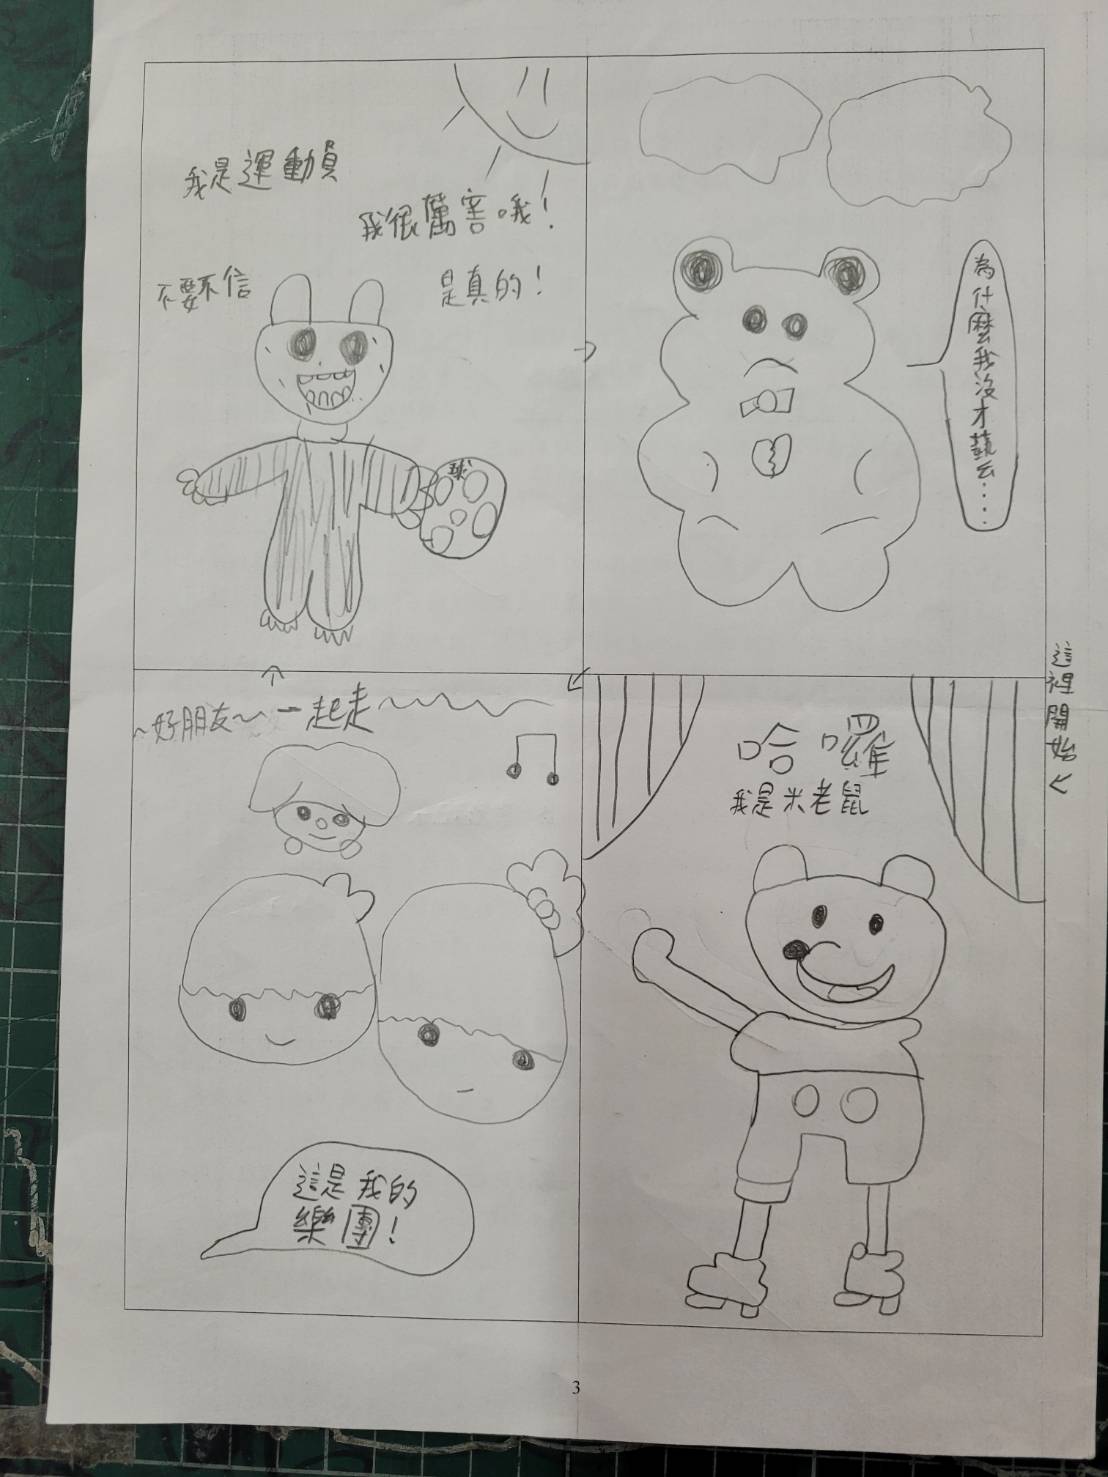 這裡開始
哈囉
我是米老鼠
~好朋友~一起走~
這是我的
樂團!
我是運動員
我很厲害哦!
不要不信
是真的!
為什麼我沒才藝ㄙ....
3